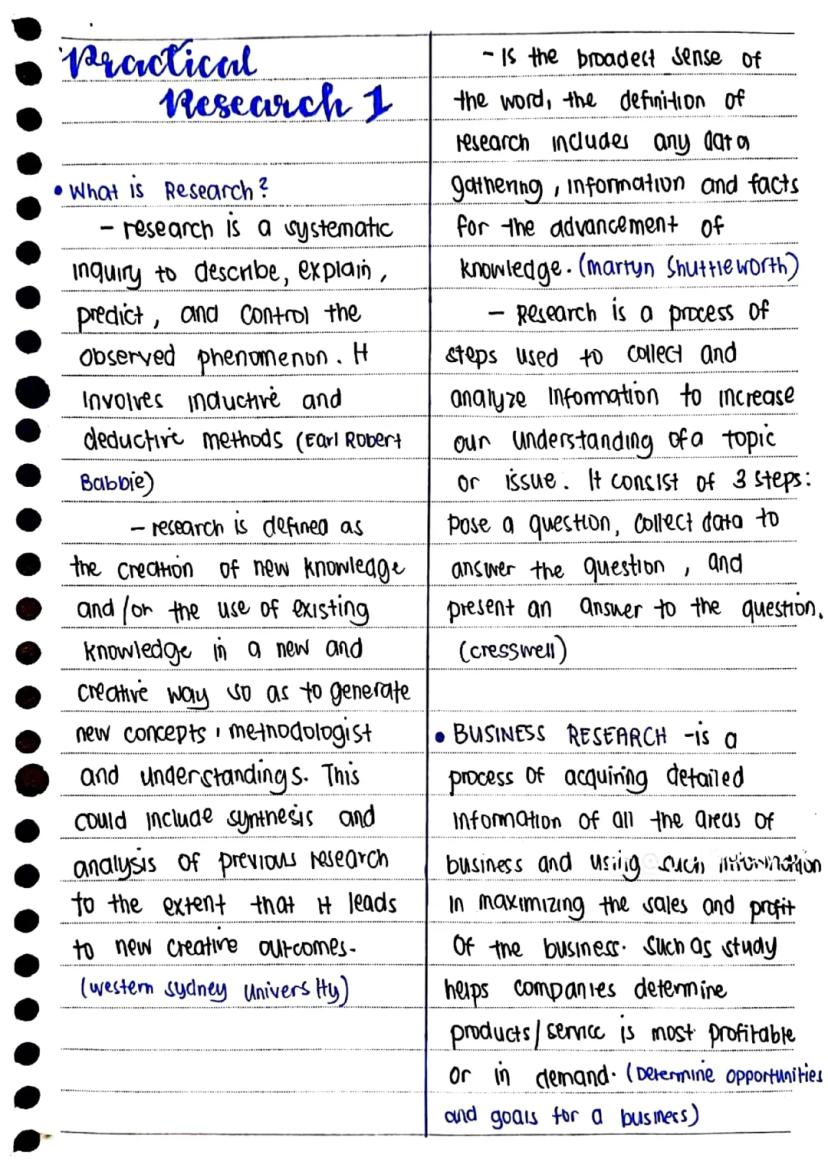 Practical
Research 1
• What is Research?
- research is a systematic
inquiry to describe, explain,
predict, and control the
observed phenomenon. It
involves inductive and
deductive methods (Earl Robert
Babbie)
- research is defined as
the creation of new knowledge
and/or the use of existing
knowledge in a new and
creative way so as to generate
new concepts, methodologist
and understandings. This
could include synthesis and
analysis of previous research
to the extent that it leads
to new creative outcomes.
(western sydney university)
- Is the broadest sense of
the word, the definition of
research includes any data
gathering, information and facts
for the advancement of
knowledge. (martyn Shuttleworth)
- Research is a process of
steps used to collect and
analyze information to increase
our understanding of a topic
or issue. It consist of 3 steps:
pose a question, collect data to
answer the question, and
present an answer to the question.
(cresswell)
• BUSINESS RESEARCH - is a
process of acquiring detailed
information of all the areas of
business and using such information
in maximizing the sales and profit
of the business. Such as study
helps companies determine
products/service is most profitable
or in demand. (Determine opportunities
and goals for a business)